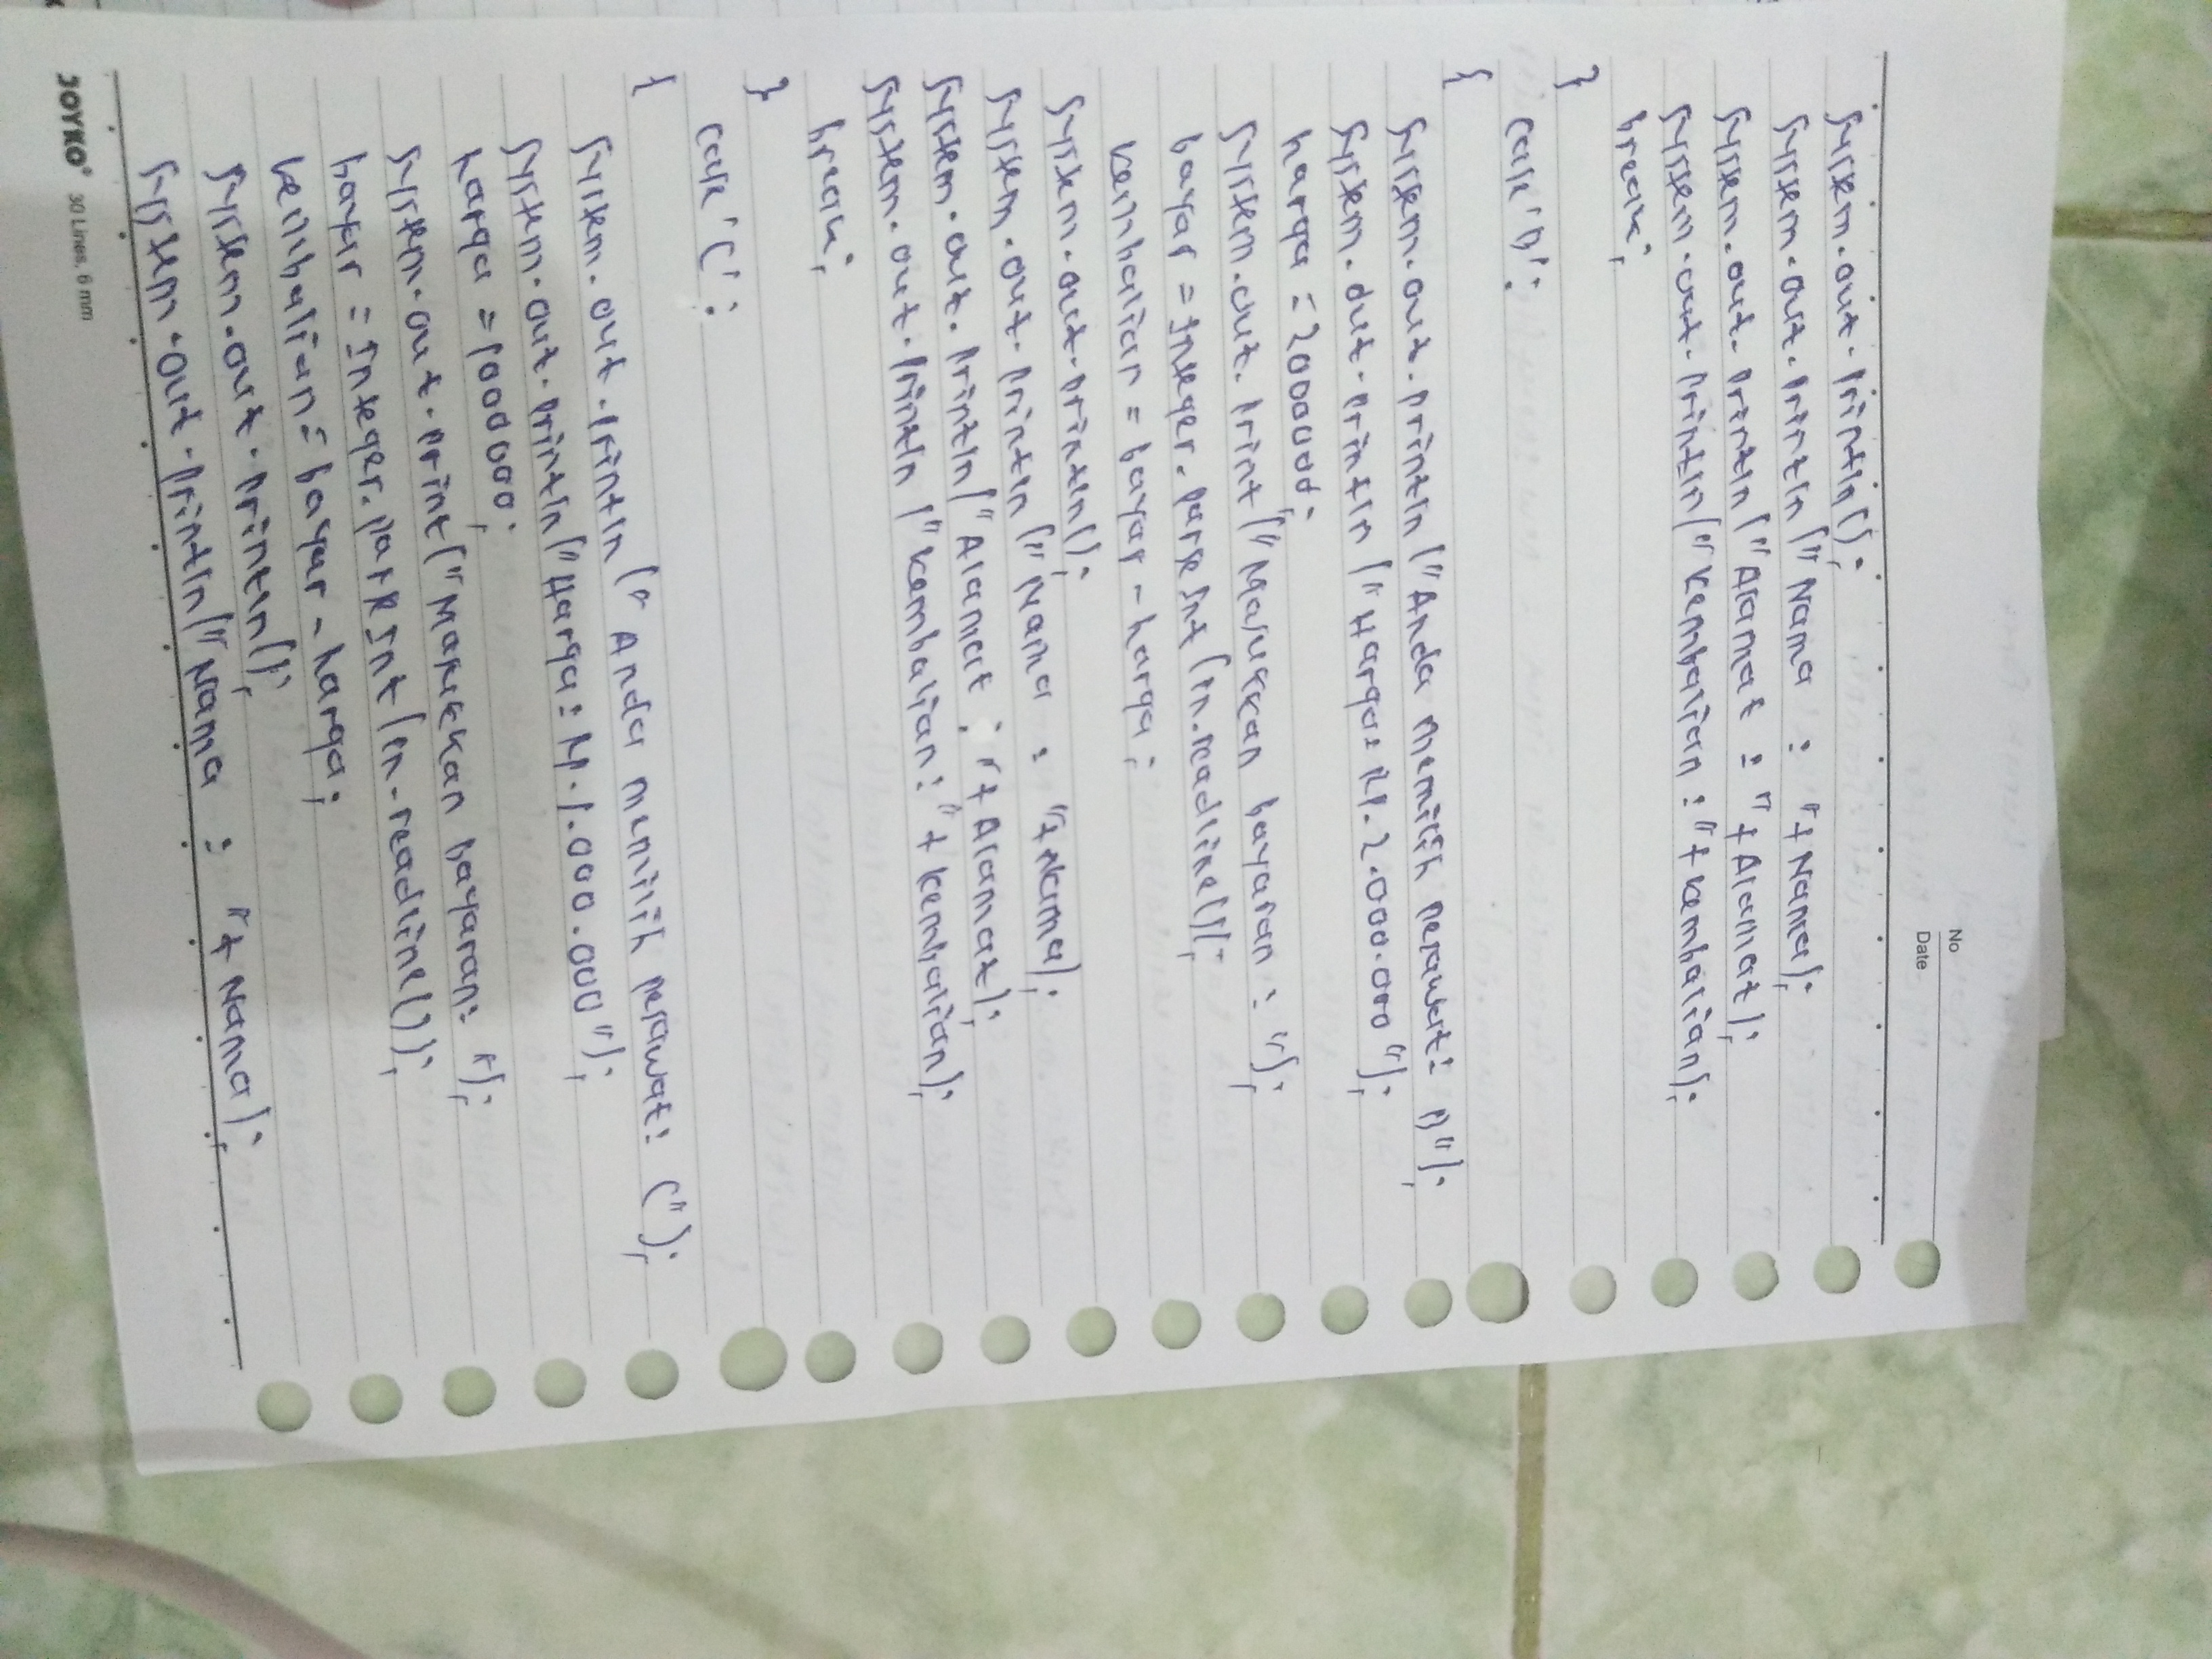 No
Date
System.out.println();
System.out.println("Nama : "+Nama);
System.out.println("Alamat : "+Alamat);
System.out.println("Kembalian : "+kembalian);
break;
}
case 'B':
{
System.out.println("Anda memilih pesawat: B");
System.out.println("Harga: Rp.2.000.000");
harga = 2000000;
System.out.print("Masukkan bayaran : ");
bayar = Integer.parseInt(in.readline());
kembalian = bayar - harga;
System.out.println();
System.out.println("Nama : "+Nama);
System.out.println("Alamat : "+Alamat);
System.out.println("kembalian: "+kembalian);
break;
}
case 'C':
{
System.out.println("Anda memilih pesawat: C");
System.out.println("Harga: Rp.1.000.000");
harga = 1000000;
System.out.print("Masukkan bayaran: ");
bayar = Integer.parseInt(in.readline());
kembalian = bayar - harga;
System.out.println();
System.out.println("Nama : "+Nama);
JOYKO 30 Lines, 6 mm